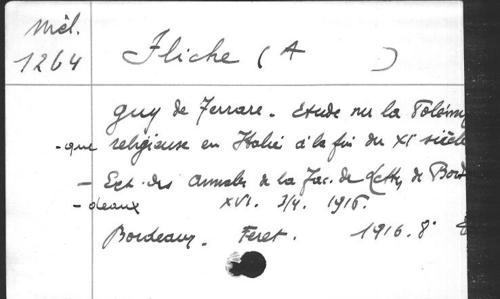 Mél.
1264
Fliche (A )
Guy de Ferrare. Etude sur la Polémi
-que religieuse en Italie à la fin du XIe siècle
- Ext. des Annales de la Fac. de Lettres de Bord
-deaux XVI. 3/4. 1916.
Bordeaux. Feret. 1916. 8°